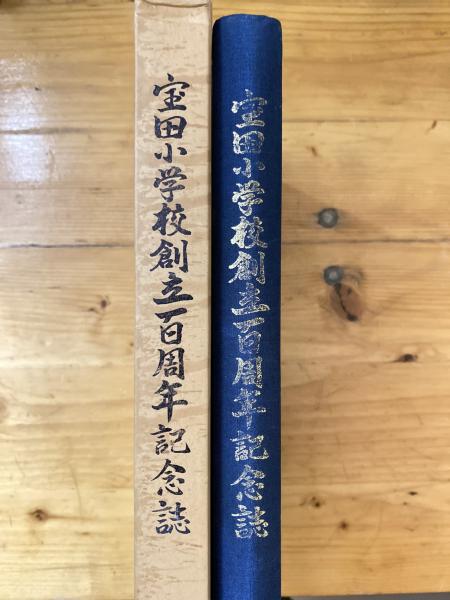 宝田小学校創立百周年記念誌
宝田小学校創立百周年記念誌